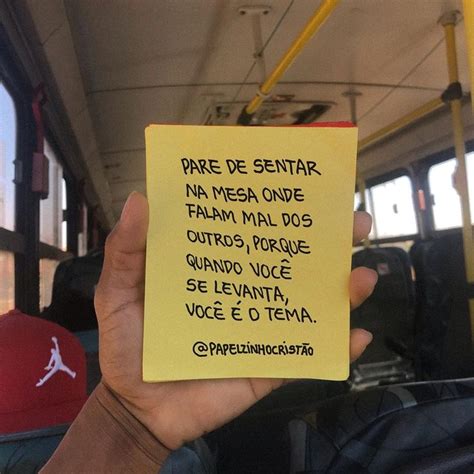 PARE DE SENTAR
NA MESA ONDE
FALAM MAL DOS
OUTROS, PORQUE
QUANDO VOCÊ
SE LEVANTA,
VOCÊ É O TEMA.
@PAPELZINHOCRISTÃO